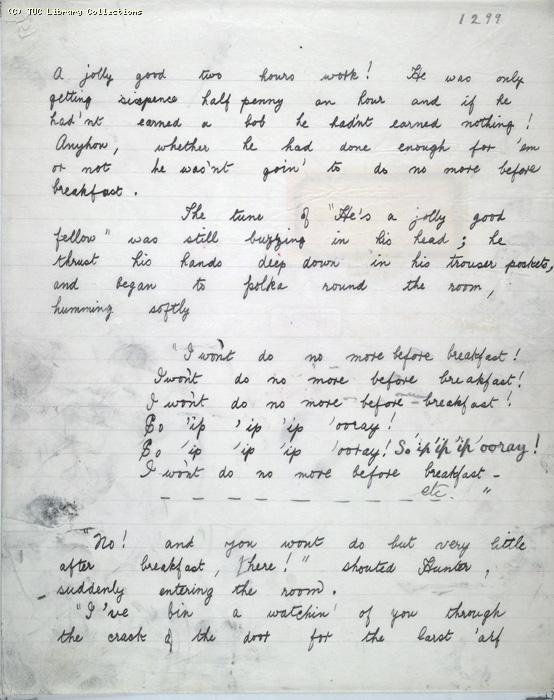 (C) TUC Library Collections
1299
A jolly good two hours work! He was only
getting sixpence half penny an hour and if he
had'nt earned a bob he hadnt earned nothing!
Anyhow, whether he had done enough for 'em
or not he was'nt goin' to do no more before
breakfast.
The tune of "He's a jolly good
fellow" was still buzzing in his head; he
thrust his hands deep down in his trouser pockets,
and began to polka round the room,
humming softly
"I wont do no more before breakfast!
I wont do no more before breakfast!
I wont do no more before breakfast!
So 'ip 'ip 'ip 'ooray!
So 'ip 'ip 'ip 'ooray! So 'ip 'ip 'ip 'ooray!
I wont do no more before breakfast -
etc. "
"No! and you wont do but very little
after breakfast, there!" shouted Hunter,
suddenly entering the room.
"I've bin a watchin' of you through
the crack of the door for the larst 'arf